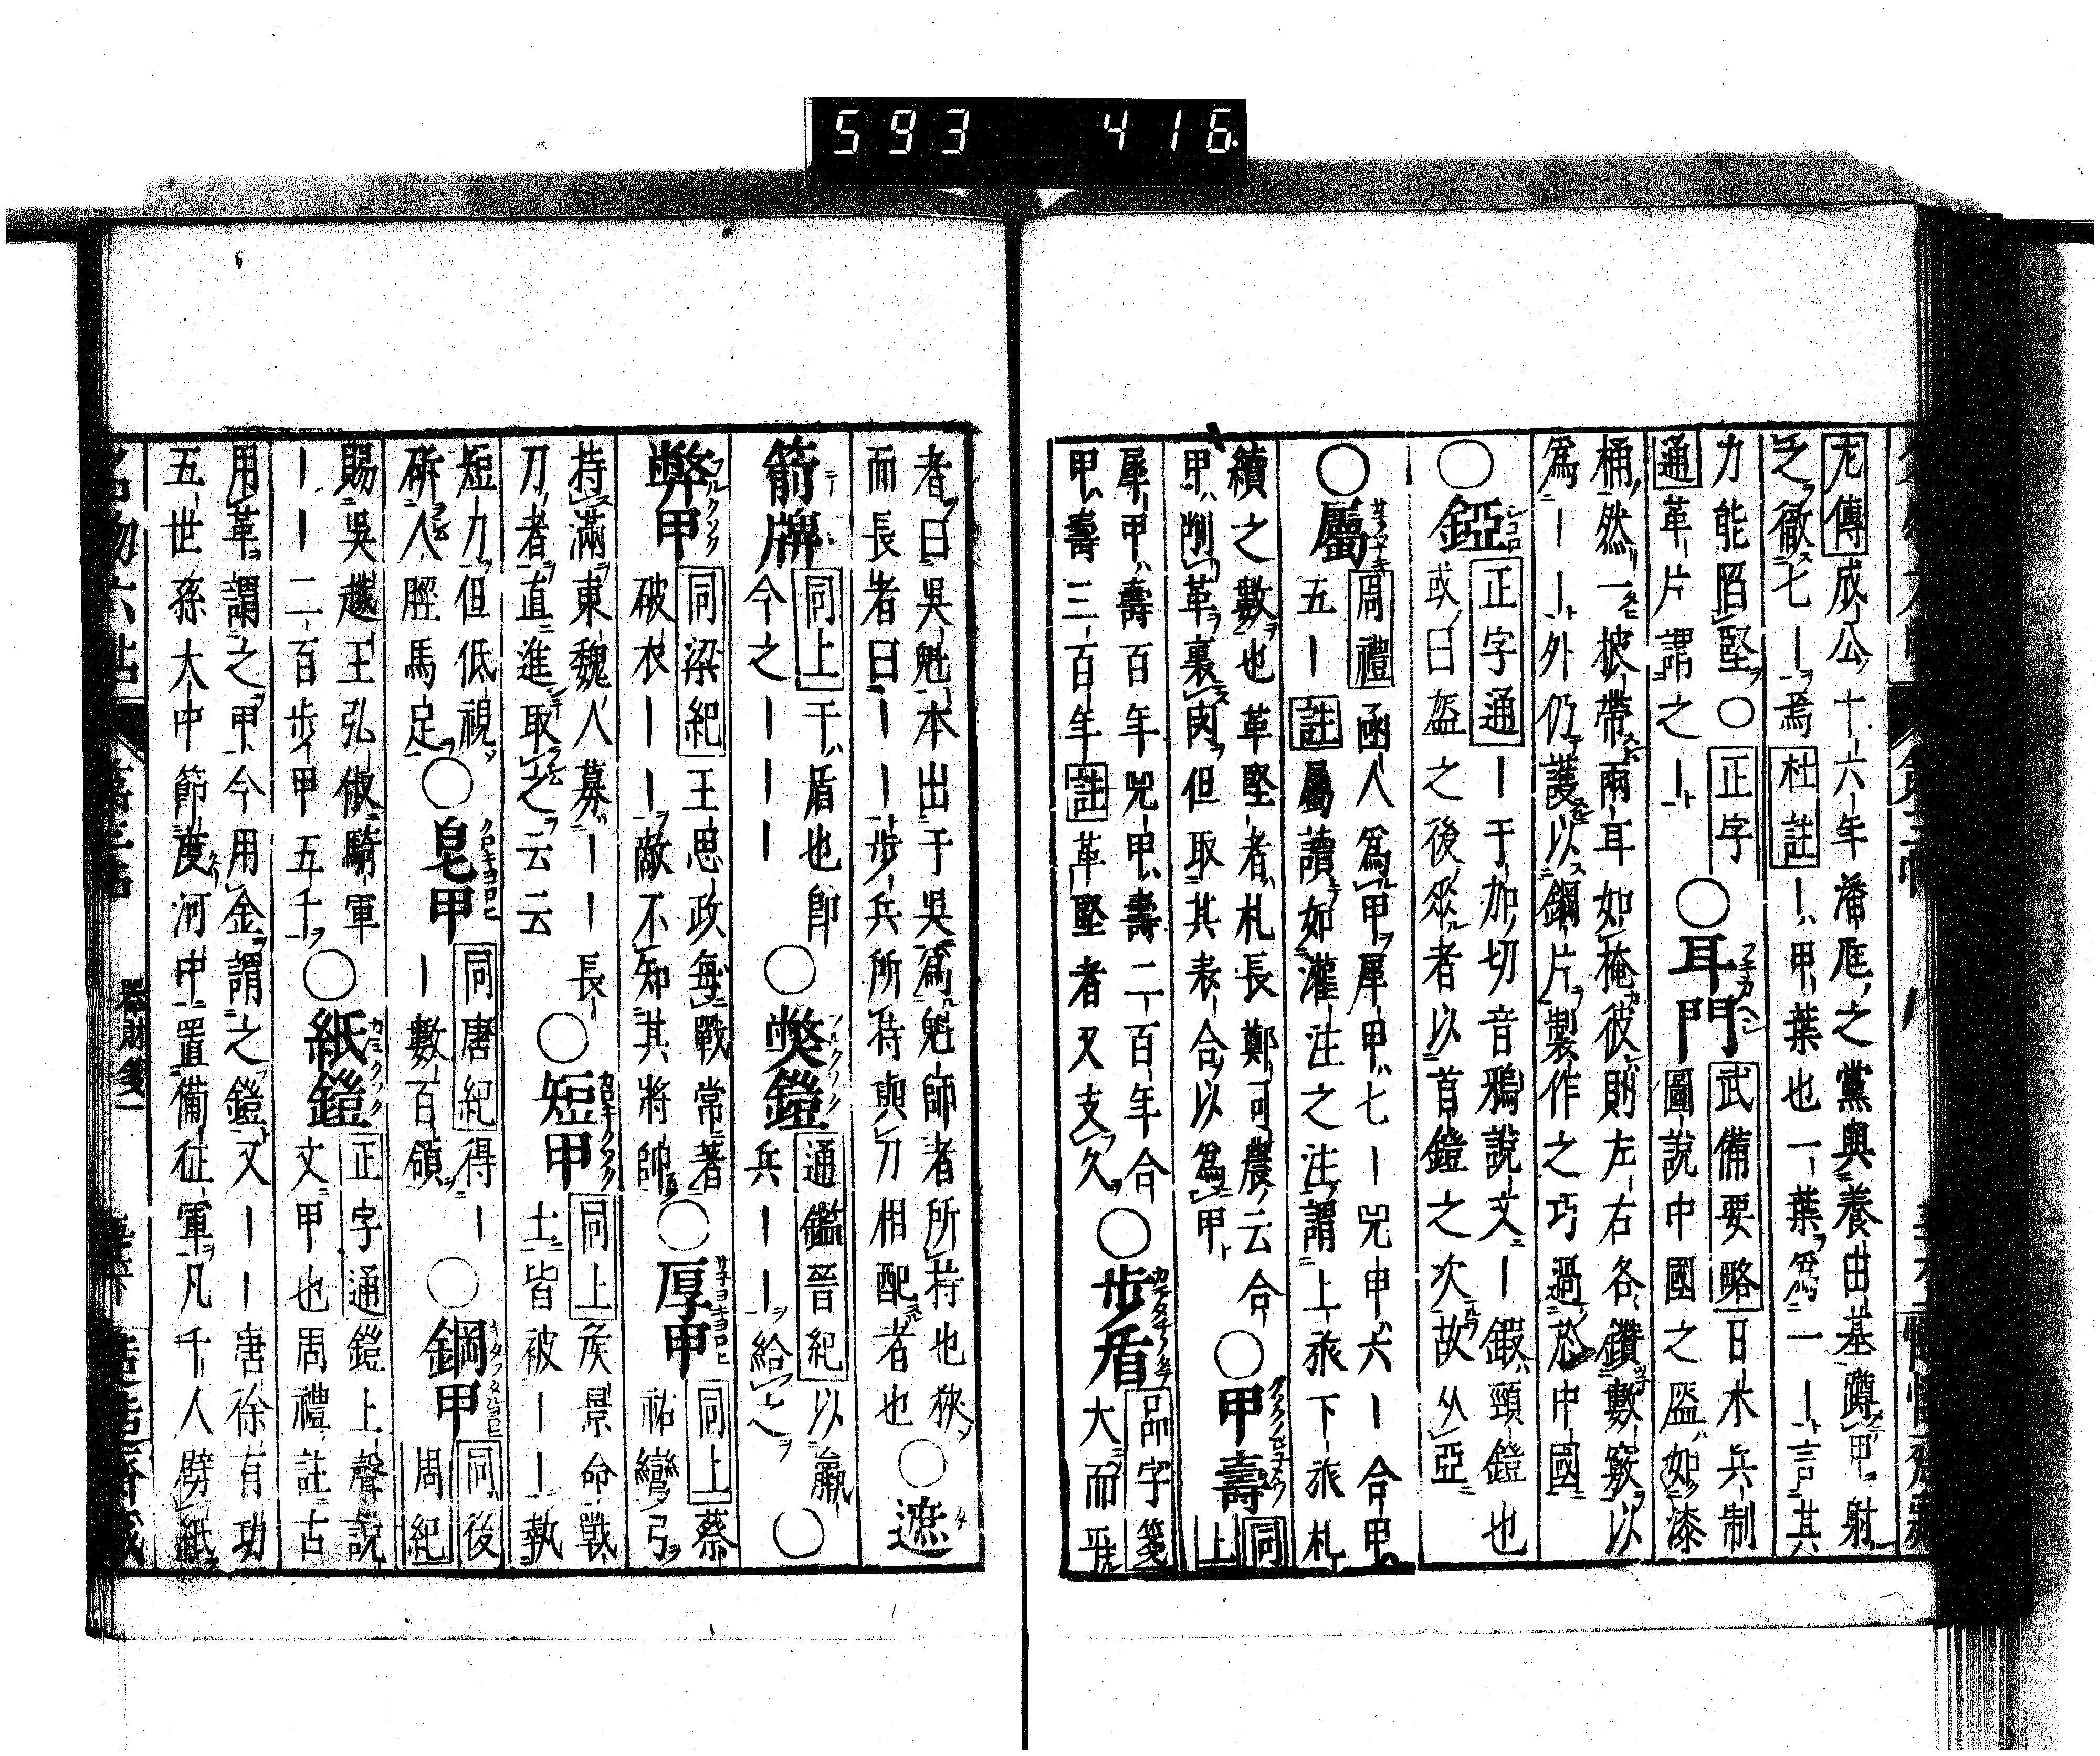 593 416
左傳成公十六年潘尫之黨與養由基蹲甲射
之徹七｜焉杜註｜甲葉也一葉為一｜言其
力能陷堅○正字
通革片謂之｜
○耳門武備要略日本兵制
圖說中國之盔如漆
桶然一披帶兩耳如掩彼則左右各鑽數竅以
為｜｜外仍護以鋼片製作之巧過於中國
○錏正字通｜于加切音鴉說文｜鍜頸鎧也
或曰盔之後垂者以首鎧之次故从亞
○屬周禮函人為甲犀甲七｜兕甲六｜合甲
五｜註屬讀如灌注之注謂上旅下旅札
續之數也革堅者札長鄭司農云合
甲削革裏肉但取其表合以為甲
○甲壽同上
犀甲壽百年兕甲壽二百年合
甲壽三百年註革堅者又支久
○步盾品字箋
大而平
者曰吳魁本出于吳為魁帥者所持也狹
而長者曰｜｜步兵所持與刀相配者也
○遮
箭牌同上干盾也即
今之｜｜｜
○獘鎧通鑑晉紀以羸
兵｜｜給之
○
弊甲同梁紀王思政每戰常著
破衣｜｜敵不知其將帥
○厚甲同上蔡
祐彎弓
持滿東魏人募｜｜長
刀者直進取之云云
○短甲同上侯景命戰
士皆被｜｜執
短刀但低視
斫人脛馬足
○皂甲同唐紀得｜
｜數百領
○鋼甲同後
周紀
賜吳越王弘俶騎軍
｜｜二百步甲五千
○紙鎧正字通鎧上聲說
文甲也周禮註古
用革謂之甲今用金謂之鎧又｜｜唐徐有功
五世孫大中節度河中置備征軍凡千人劈紙